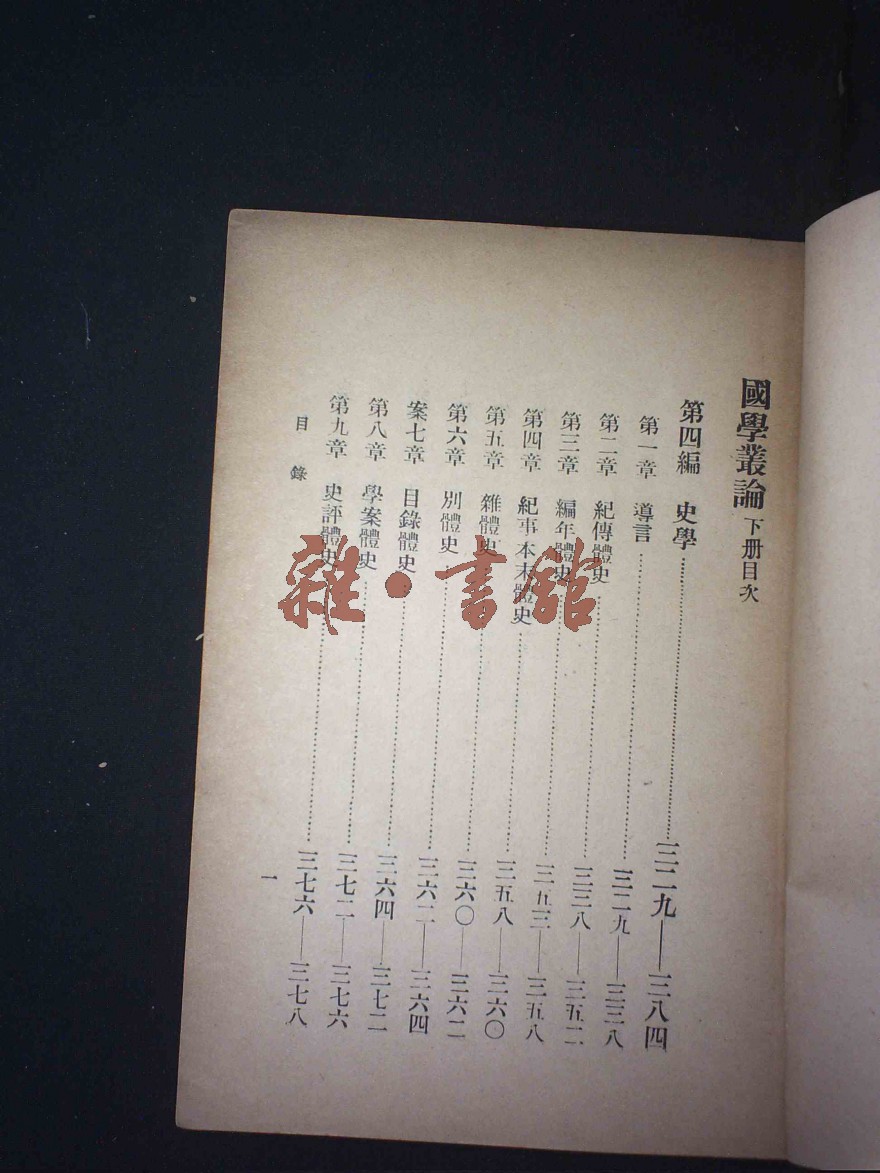 國學叢論 下册目次
第四編 史學……三二九——三八四
第一章 導言……三二九——三三八
第二章 紀傳體史……三三八——三五二
第三章 編年體史……三五三——三五八
第四章 紀事本末體史……三五八——三六〇
第五章 雜體史……三六〇——三六二
第六章 別體史……三六二——三六四
案七章 目錄體史……三六四——三七二
第八章 學案體史……三七二——三七六
第九章 史評體史……三七六——三七八
目錄 一
雜·書館